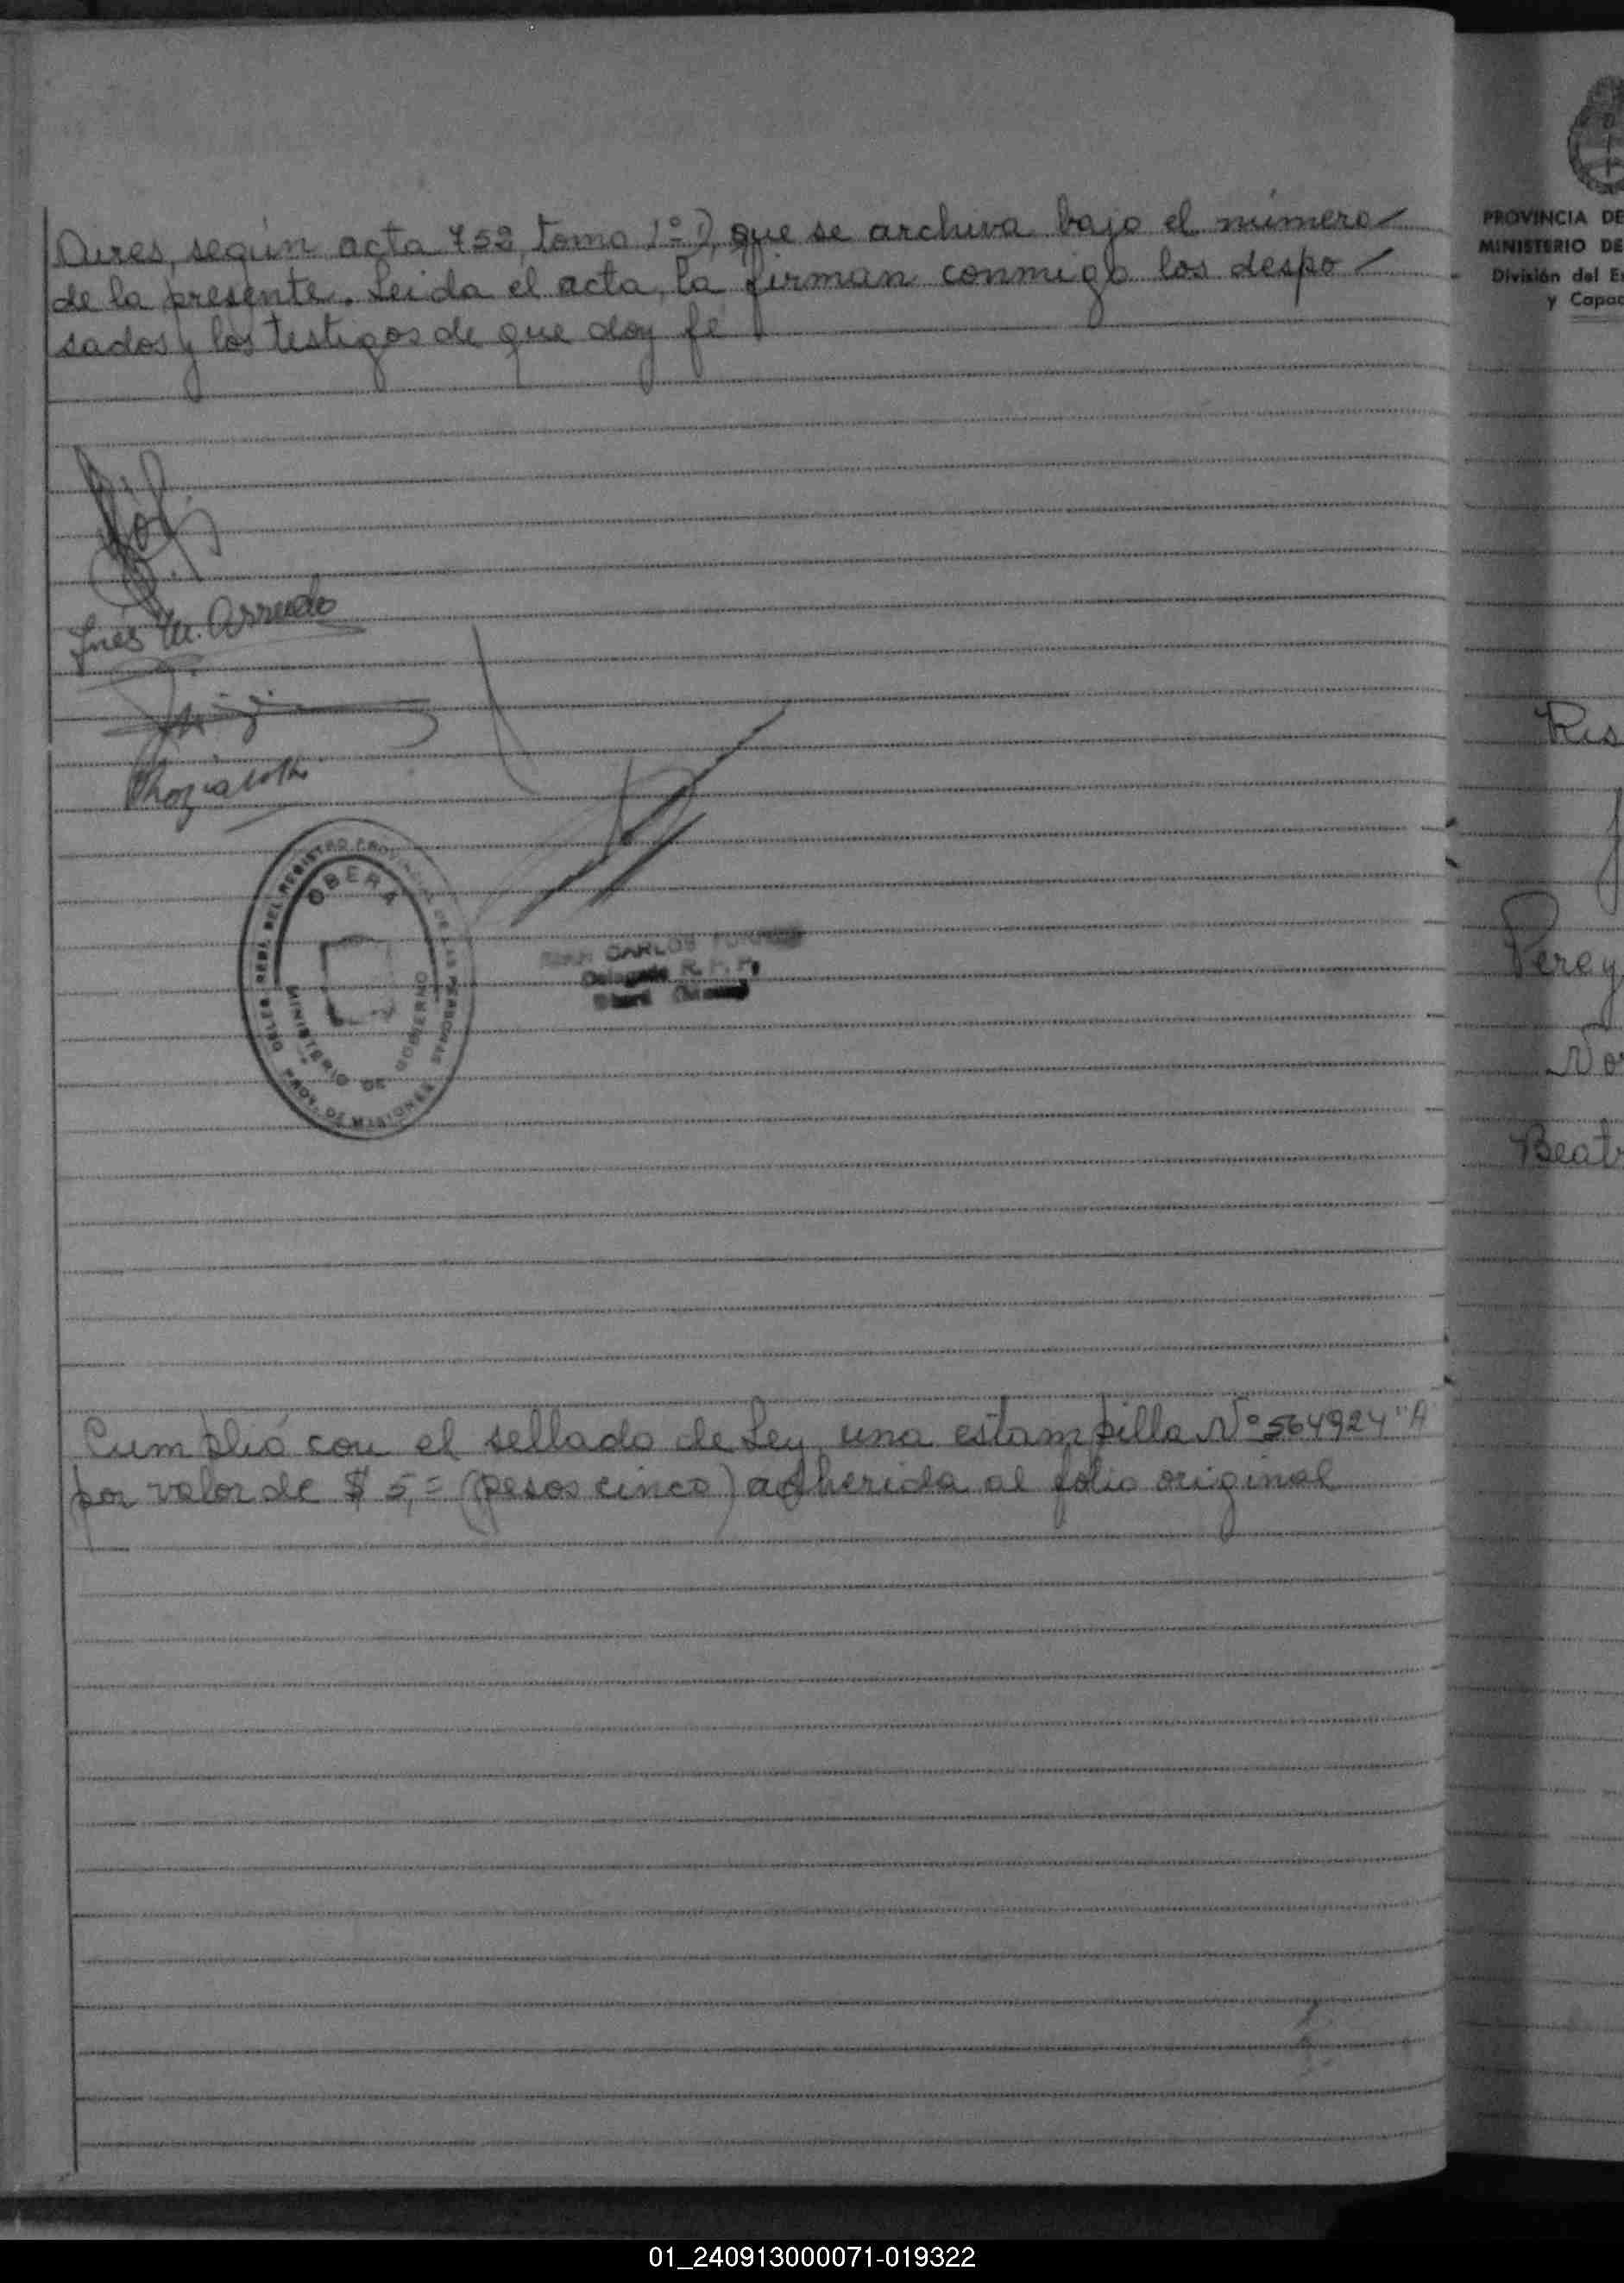 Aires, según acta 752, tomo 1º D, que se archiva bajo el número
de la presente. Leida el acta, la firman conmigo los despo
sados y los testigos de que doy fé
Inés M. Arrudo
OBERÁ
MINISTERIO DE GOBIERNO
PROV. DE MISIONES
CARLOS
Delegado R. P. P.
Cumplió con el sellado de Ley, una estampilla Nº 564924 "A
por valor de $ 5,= (pesos cinco) adherida al folio original
PROVINCIA DE
MINISTERIO DE
División del Es
y Capac
Res
Perey
No
Beatr
01_240913000071-019322